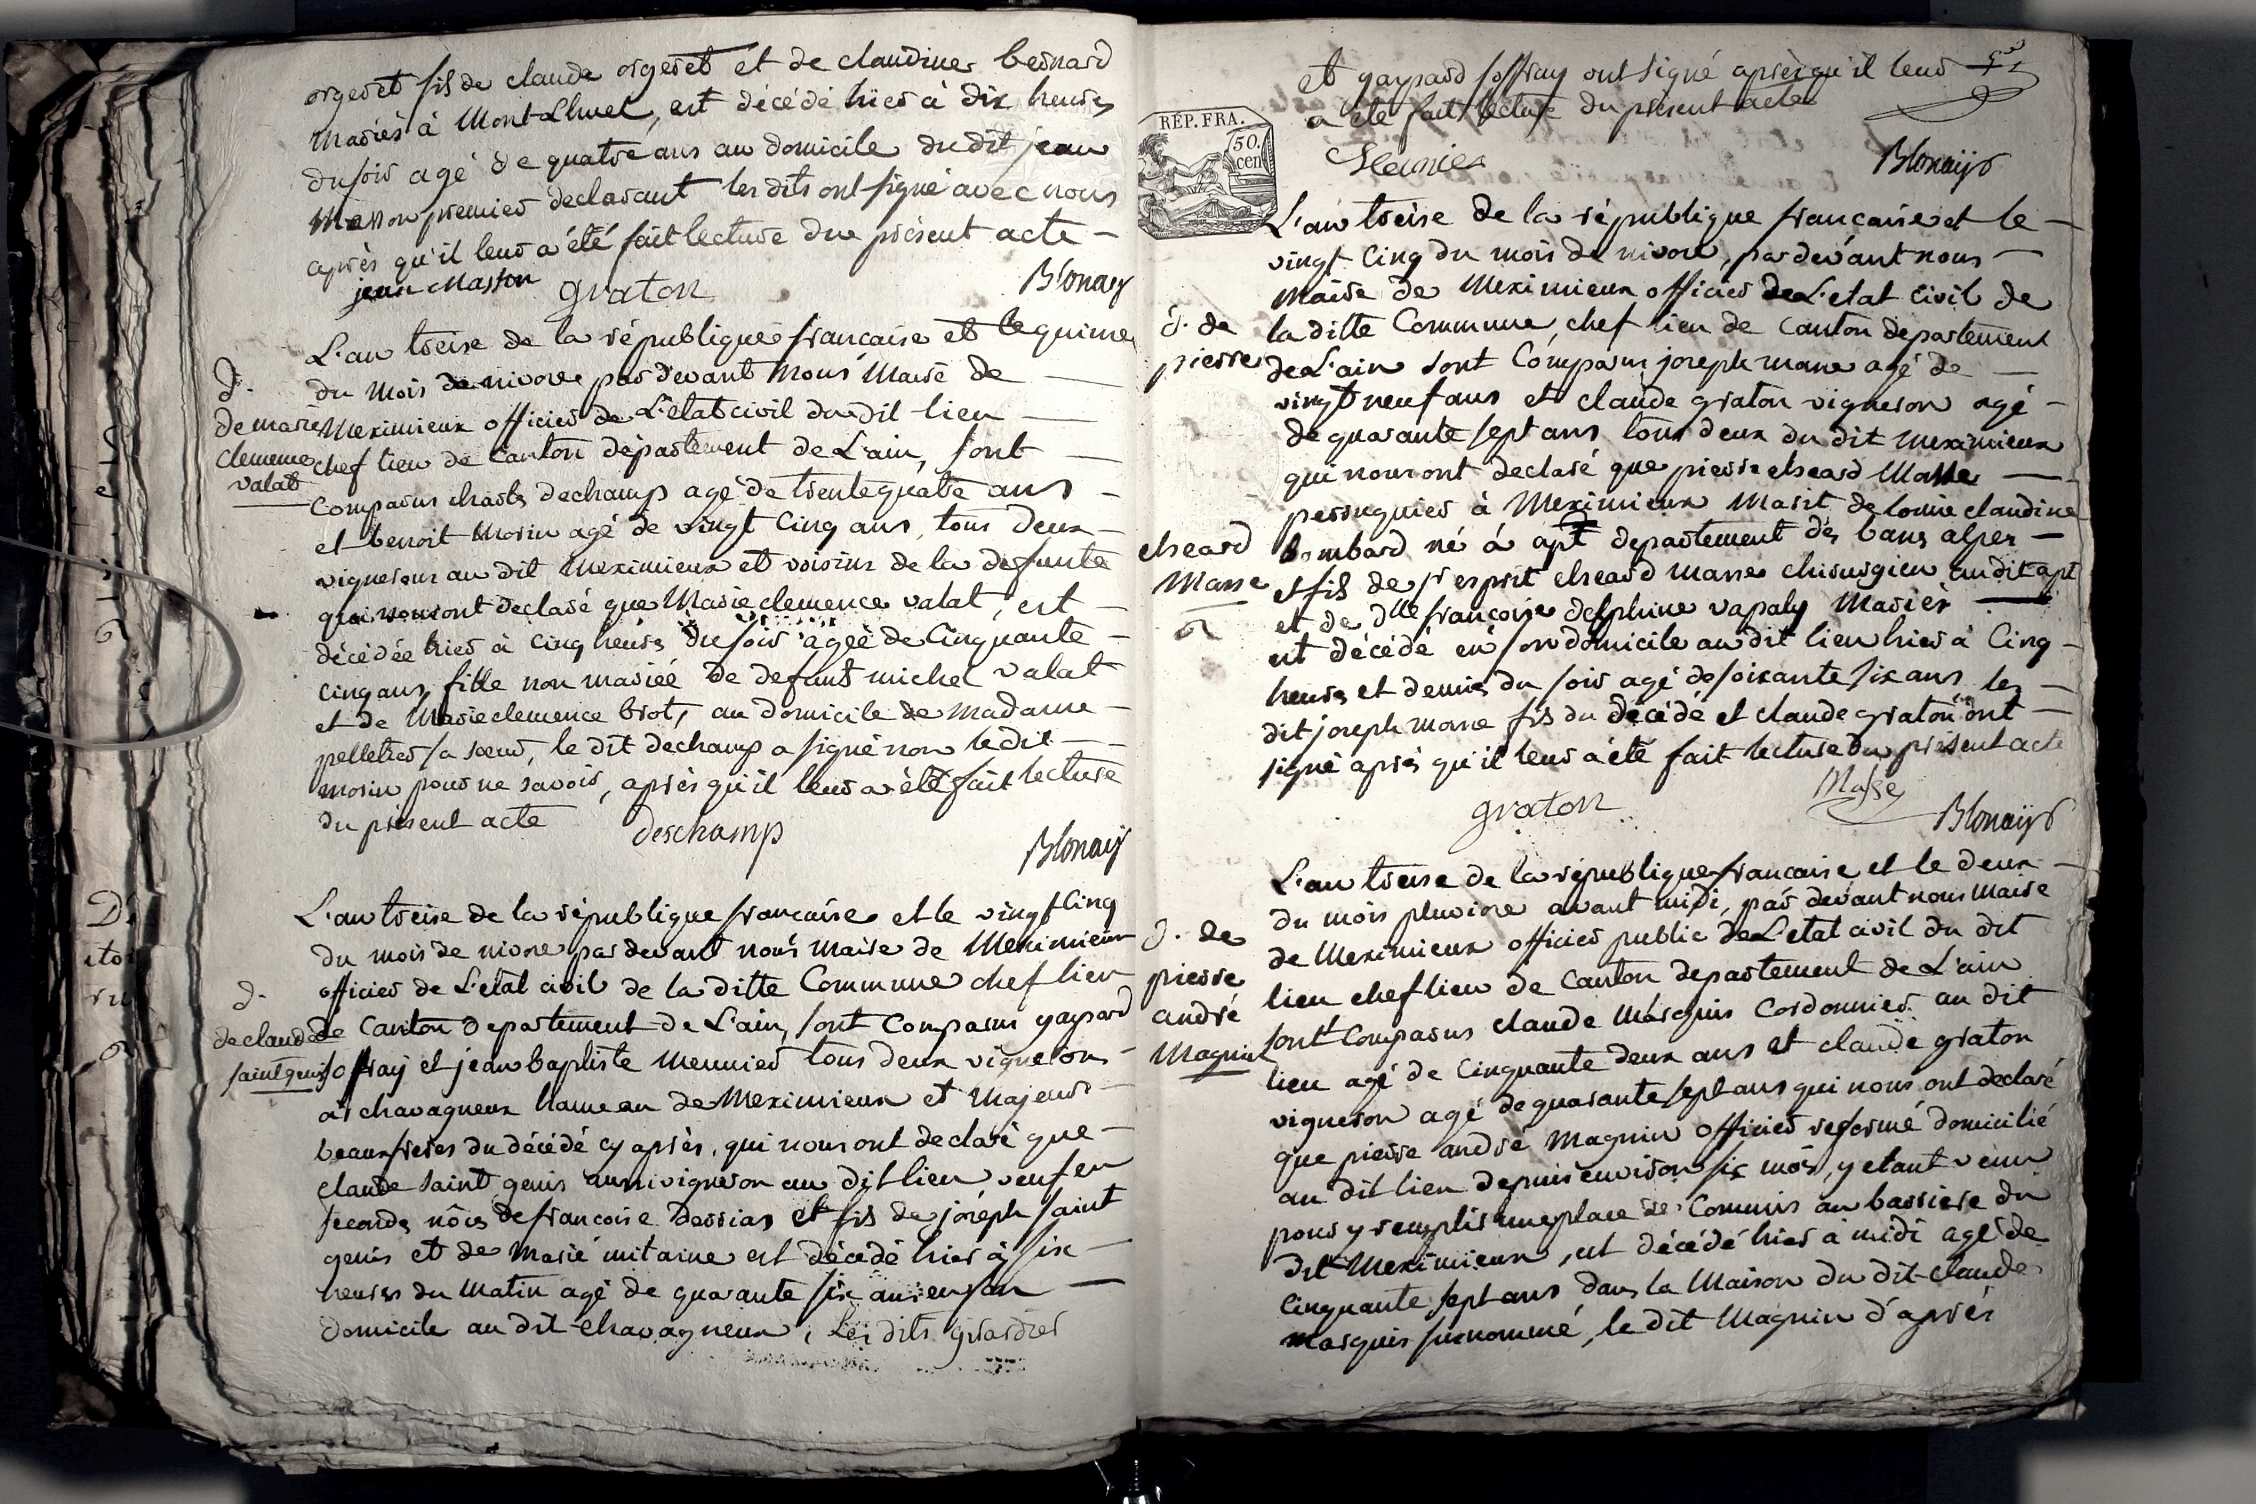 orgeret fils de claude orgeret et de claudine bernard
mariés à Mont Lluel, est décédé hier à dix heures
du soir agé de quatre ans au domicile du dit jean
Masson premier declarant les dits ont signé avec nous
après qu'il leur a été fait lecture du présent acte –
jean Masson graton Blonay
L'an treise de la république française et le quinse
du mois de nivose par devant nous Maire de
Meximieux officier de L'état civil du dit lieu
chef lieu de canton département de L'ain, sont
comparus charles dechamp agé de trente quatre ans
et benoit Morin agé de vingt cinq ans, tous deux
vignerons au dit Meximieux et voisins de la defunte
qui nous ont declaré que Marie clemence valat, est
décédée hier à cinq heures du soir agée de Cinquante
cinq ans, fille non mariée de defunt michel valat
et de Marie clemence brot, au domicile de Madame
pelletier sa sœur, le dit dechamp a signé non le dit
morin pour ne savoir, après qu'il leur a été fait lecture
du présent acte
deschamp Blonay
d.
de marie
clemence
valat
L'an treise de la république française et le vingt Cinq
du mois de nivose par devant nous maire de Meximieux
officier de L'état civil de la ditte Commune chef lieu
de Canton departement de L'ain, sont Comparus gaspard
soffray et jean baptiste Meunier tous deux vignerons
à chavagneux hameau de Meximieux et Majeurs
beaux freres du décédé cy après, qui nous ont declaré que
claude saint genis aussi vigneron au dit lieu veuf en
secondes nôces de francoise derrias et fils de joseph saint
genis et de marie mitaine est décédé hier à six
heures du Matin agé de quarante six ans en son
domicile au dit chavagneux, Les dits
d.
de claude
saint genis
et gaspard soffray ont signé après qu'il leur
a été fait lecture du présent acte
Meunier Blonay
RÉP. FRA.
50.
cen
L'an treise de la république française et le
vingt Cinq du mois de nivose, par devant nous
Maire de Meximieux officier de L'état civil de
la ditte Commune, chef lieu de canton departement
de L'ain sont Comparus joseph masse agé de
vingt neuf ans et claude graton vigneron agé
de quarante sept ans tous deux du dit meximieux
qui nous ont declaré que pierre elseard Masse
perruquier à Meximieux Marit de louise claudine
bombard né à apt departement des bases alpes
et fils de sr esprit elseard masse chirurgien au dit apt
et de dlle françoise delphine vapaly Mariés
est décédé en son domicile au dit lieu hier à Cinq
heures et demie du soir agé de soixante six ans les
dit joseph masse fils du décédé et claude graton ont
signé après qu'il leur a été fait lecture du présent acte
graton Masse Blonay
d. de
pierre
elseard
Masse
L'an treise de la république française et le deux
du mois pluviose avant midi, par devant nous maire
de Meximieux officier public de L'état civil du dit
lieu chef lieu de Canton departement de L'ain
sont Comparus claude Marquis Cordonnier au dit
lieu agé de Cinquante deux ans et claude graton
vigneron agé de quarante sept ans qui nous ont declaré
que pierre andré Magnin officier reformé domicilié
au dit lieu depuis environ six mois, y etant venu
pour y remplir une place de Commis au barriere du
dit Meximieux, est décédé hier à midi agé de
Cinquante sept ans dans la Maison du dit claude
marquis susnommé, le dit Magnin d'après
d. de
pierre
andré
Magnin